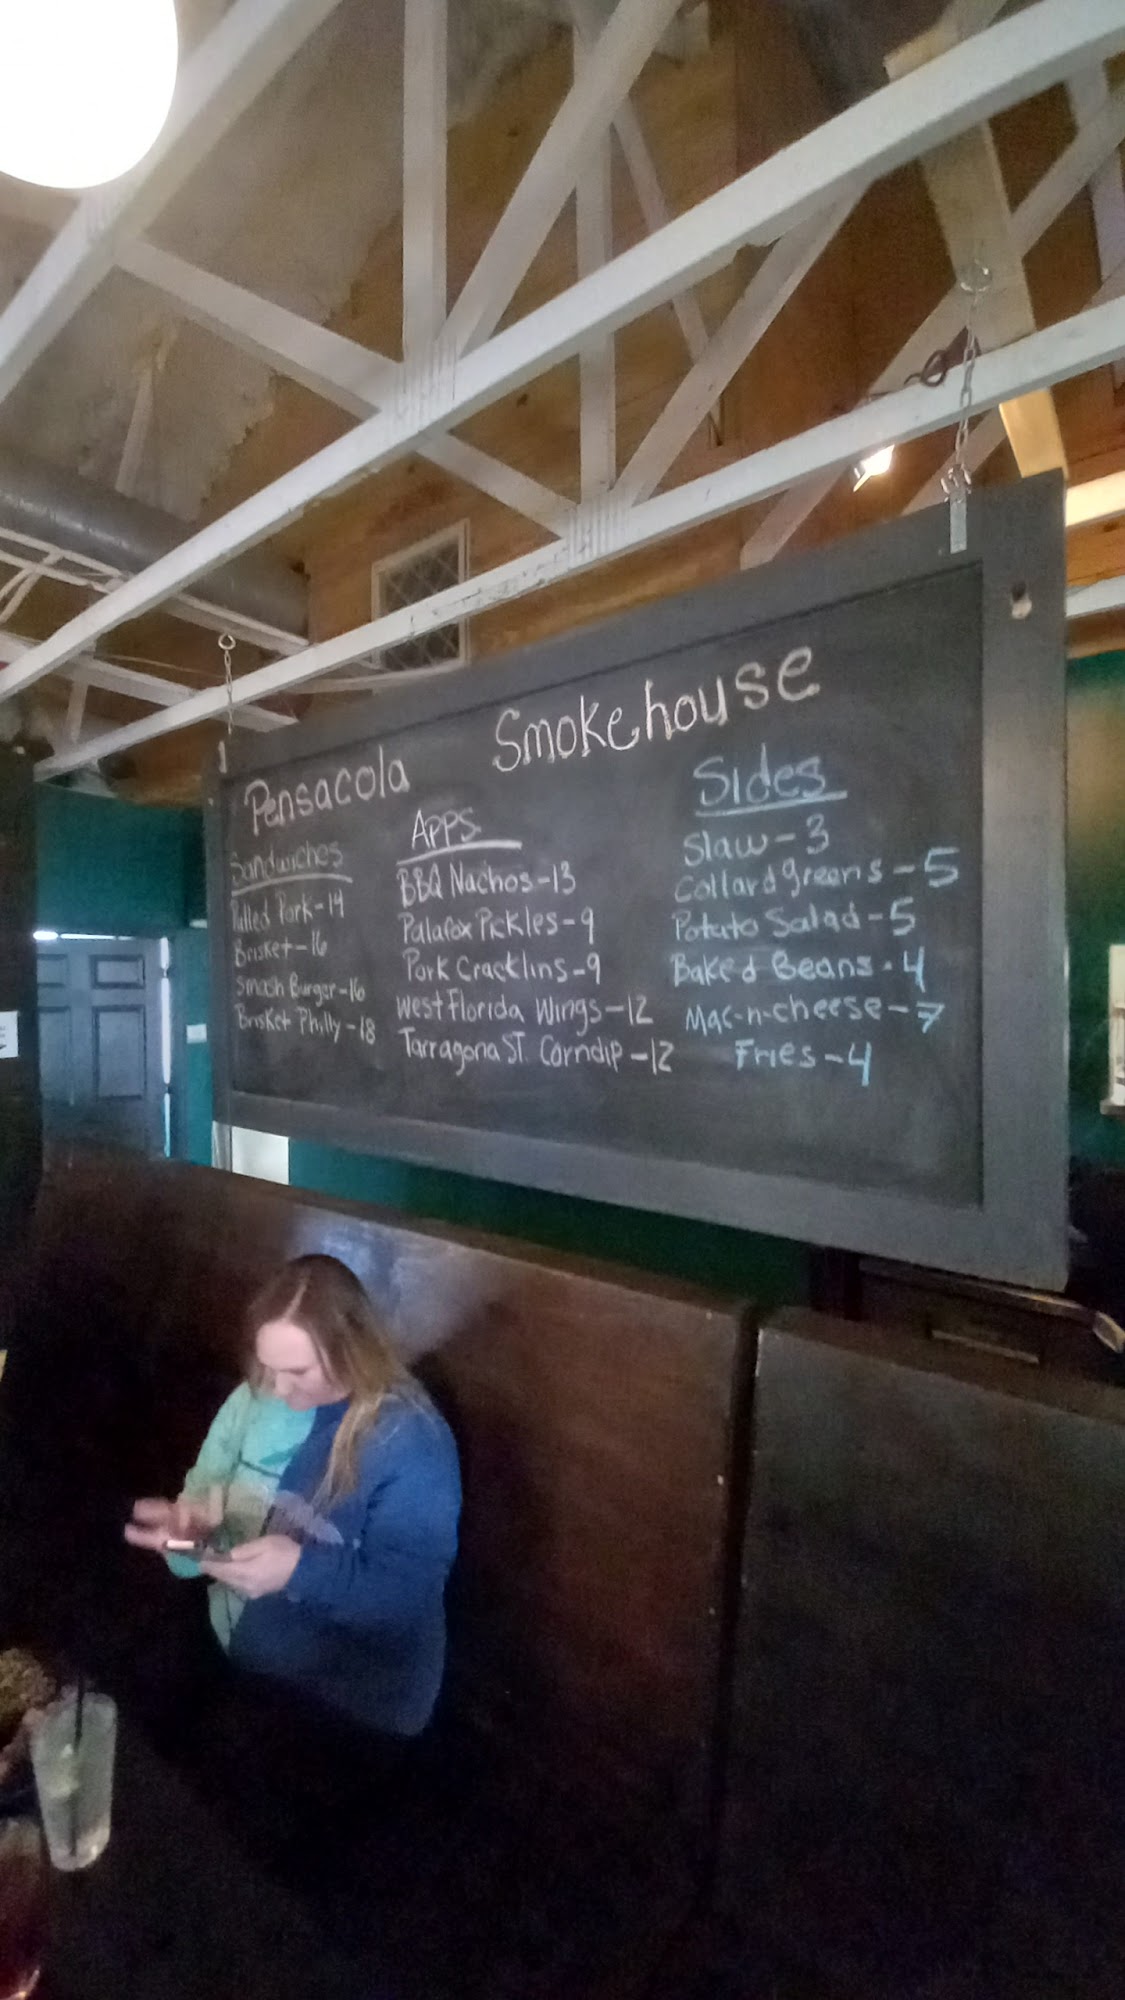 Pensacola Smokehouse
Sandwiches
Pulled Pork-14
Brisket-16
Smash Burger-16
Brisket Philly-18
Apps
BBQ Nachos-13
Palafox Pickles-9
Pork Cracklins-9
West Florida Wings-12
Tarragona ST. Corndip-12
Sides
Slaw-3
Collard greens-5
Potato Salad-5
Baked Beans-4
Mac-n-cheese-7
Fries-4